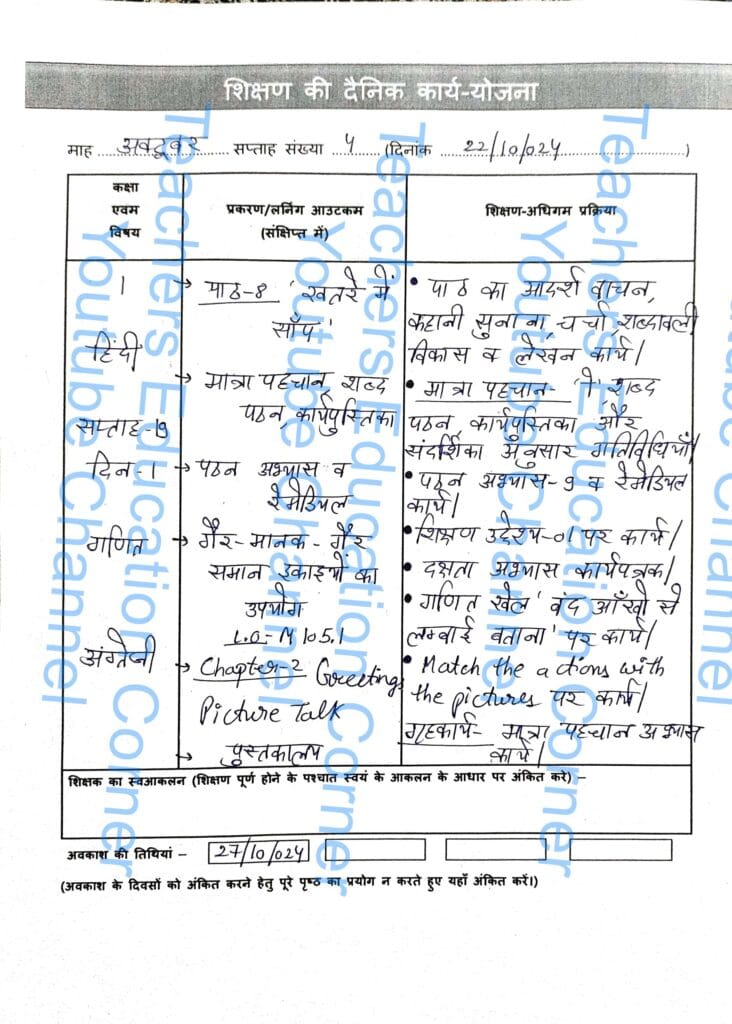 शिक्षण की दैनिक कार्य-योजना
माह अक्टूबर सप्ताह संख्या 4 (दिनांक 22/10/024)
कक्षा
एवम
विषय
प्रकरण/लर्निंग आउटकम
(संक्षिप्त में)
शिक्षण-अधिगम प्रक्रिया
1
हिंदी
सप्ताह-19
दिन-1
गणित
अंग्रेजी
→ पाठ-8 'खतरे में
साँप'
→ मात्रा पहचान, शब्द
पठन, कार्यपुस्तिका
→ पठन अभ्यास व
रेमेडियल
→ गैर-मानक-गैर
समान इकाइयों का
उपयोग
L.O.-M105.1
→ Chapter-2 Greetings
Picture Talk
→ पुस्तकालय
• पाठ का आदर्श वाचन,
कहानी सुनाना, चर्चा, शब्दावली
विकास व लेखन कार्य।
• मात्रा पहचान- 'े', शब्द
पठन, कार्यपुस्तिका और
संदर्शिका अनुसार गतिविधियाँ।
• पठन अभ्यास-9 व रेमेडियल
कार्य।
• शिक्षण उद्देश्य-01 पर कार्य।
• दक्षता अभ्यास कार्यपत्रक।
• गणित खेल 'बंद आँखों से
लम्बाई बताना' पर कार्य।
• Match the actions with
the pictures पर कार्य।
गृहकार्य- मात्रा पहचान अभ्यास
कार्य।
शिक्षक का स्वआकलन (शिक्षण पूर्ण होने के पश्चात स्वयं के आकलन के आधार पर अंकित करे) –
अवकाश की तिथियां – 27/10/024
(अवकाश के दिवसों को अंकित करने हेतु पूरे पृष्ठ का प्रयोग न करते हुए यहाँ अंकित करें।)
Teachers Education Corner
Youtube Channel
Teachers Education Corner
Youtube Channel
Teachers Education Corner
Youtube Channel